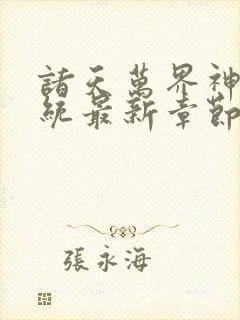 諸天萬界神
統最新章節
張永海